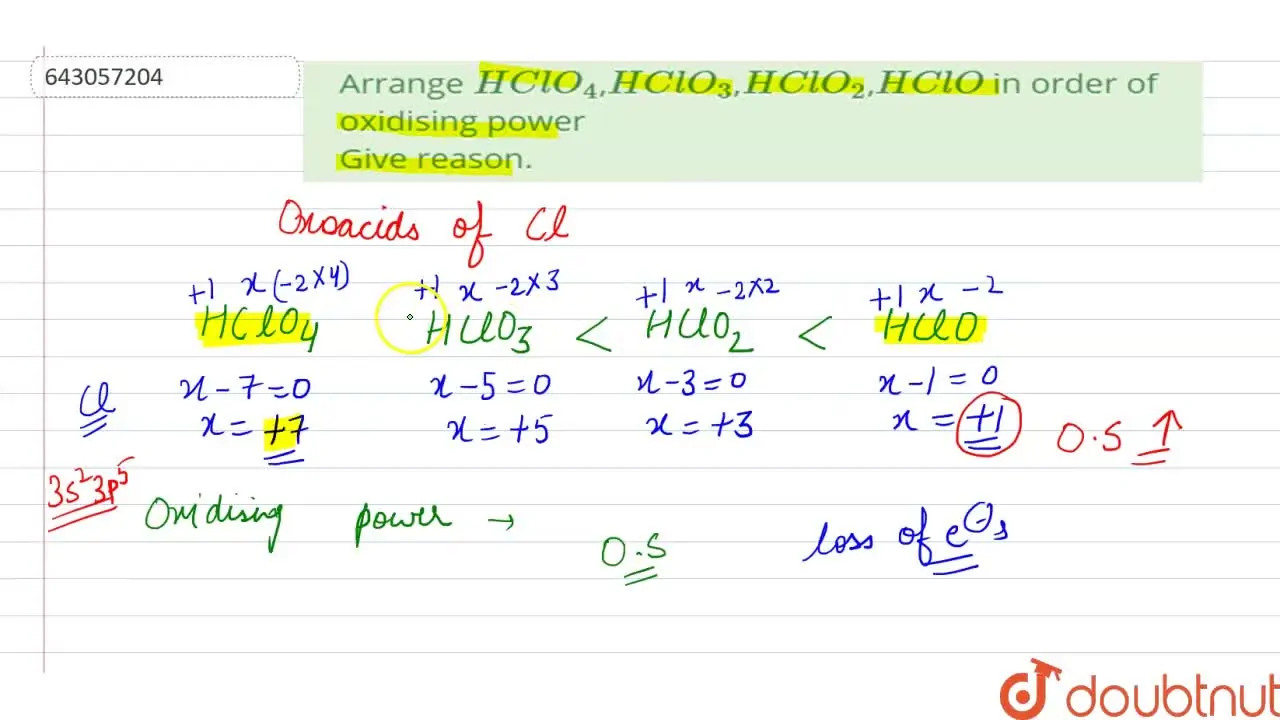 643057204
Arrange HClO₄,HClO₃,HClO₂,HClO in order of
oxidising power
Give reason.
Oxoacids of Cl
+1 x (-2×4) +1 x -2×3 +1 x -2×2 +1 x -2
HClO₄ HClO₃ < HClO₂ < HClO
Cl x-7=0 x-5=0 x-3=0 x-1=0
x=+7 x=+5 x=+3 x=+1 O.S ↑
3s²3p⁵ Oxidising power → O.S loss of e⊖s
doubtnut